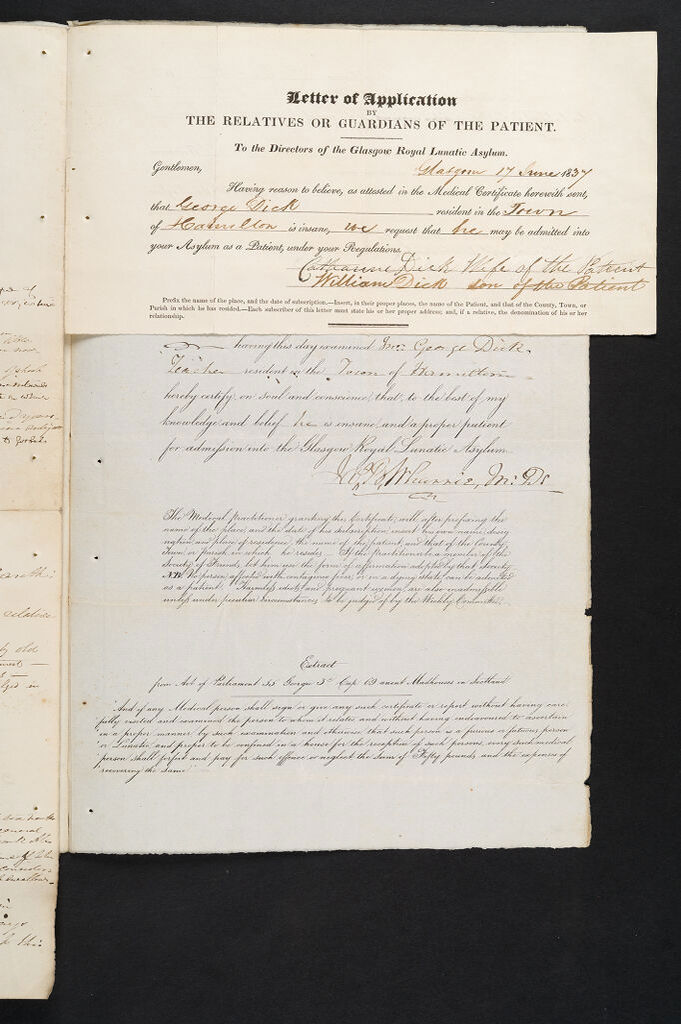 Letter of Application
BY
THE RELATIVES OR GUARDIANS OF THE PATIENT.
To the Directors of the Glasgow Royal Lunatic Asylum.
Gentlemen,
Glasgow 17 June 1837
Having reason to believe, as attested in the Medical Certificate herewith sent,
that George Dick resident in the Town
of Hamilton is insane, we request that he may be admitted into
your Asylum as a Patient, under your Regulations.
Catharine Dick Wife of the Patient
William Dick son of the Patient
Prefix the name of the place, and the date of subscription.—Insert, in their proper places, the name of the Patient, and that of the County, Town, or
Parish in which he has resided.—Each subscriber of this letter must state his or her proper address; and, if a relative, the denomination of his or her
relationship.
having this day examined George Dick
Teacher resident in the Town of Hamilton
hereby certify on Soul and conscience, that, to the best of my
knowledge and belief he is insane and a proper patient
for admission into the Glasgow Royal Lunatic Asylum
M.D.
The Medical practitioner granting this Certificate, will, after prefixing the
name of the place and the date of his subscription insert his own name, desig
nation and place of residence, the name of the patient, and that of the County,
Town or parish in which he resides — If the Practitioner be a member of the
Society of Friends let him use the form of affirmation adopted by that Society
NB. No person affected with contagious fever, or in a dying state, can be admitted
as a patient. Harmless idiots and pregnant women are also inadmissible
unless under peculiar circumstances to be judged of by the Weekly Committee.
Extract
from Act of Parliament 55 George 3d Cap 69 anent Madhouses in Scotland
And if any Medical person shall sign or give any such certificate or report without having care-
fully visited and examined the person to whom it relates and without having endeavoured to ascertain
in a proper manner by such examination and otherwise that such person is a furious or fatuous person
or Lunatic and proper to be confined in a house for the reception of such persons, every such medical
person shall forfeit and pay for such offence or neglect the sum of Fifty pounds and the expenses of
"recovering the same"